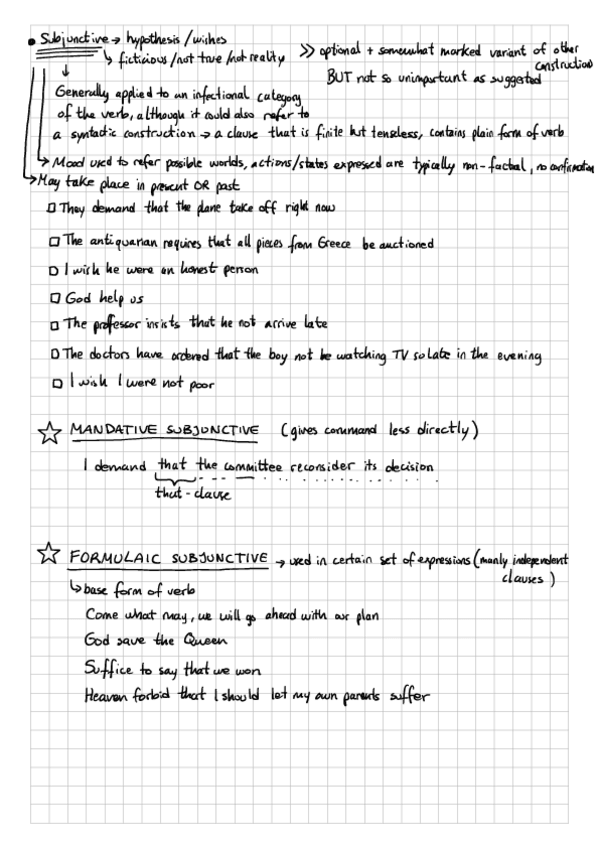 • Subjunctive → hypothesis/wishes
↳ ficticious/not true/not reality
>> optional + somewhat marked variant of other
construction
BUT not so unimportant as suggested
↓
Generally applied to an infectional category
of the verb, although it could also refer to
a syntactic construction → a clause that is finite but tenseless, contains plain form of verb
→ Mood used to refer possible worlds, actions/states expressed are typically non-factual, no confirmation
→ May take place in present OR past
□ They demand that the plane take off right now
□ The antiquarian requires that all pieces from Greece be auctioned
□ I wish he were an honest person
□ God help us
□ The professor insists that he not arrive late
□ The doctors have ordered that the boy not be watching TV so late in the evening
□ I wish I were not poor
☆ MANDATIVE SUBJUNCTIVE (gives command less directly)
I demand that the committee reconsider its decision
that-clause
☆ FORMULAIC SUBJUNCTIVE → used in certain set of expressions (manly independent
clauses)
↳ base form of verb
Come what may, we will go ahead with our plan
God save the Queen
Suffice to say that we won
Heaven forbid that I should let my own parents suffer